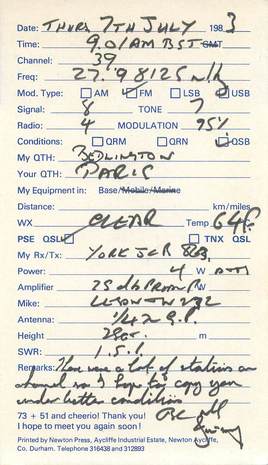 Date: THURS 7TH JULY 1983
Time: 9.01AM BST GMT
Channel: 39
Freq: 27.98125 M/h
Mod. Type: AM FM LSB USB
Signal: 8 TONE 7
Radio: 4 MODULATION 95%
Conditions: QRM QRN QSB
My QTH: BEDLINGTON
Your QTH: PARIS
My Equipment in: Base/Mobile/Marine
Distance: km/miles
WX CLEAR Temp 64F
PSE QSL TNX QSL
My Rx/Tx: YORK JCB 863
Power: 4 W
Amplifier 25
Mike:
Antenna: 1/4 λ G.P.
Height 28ft. m
SWR: 1.5.1
Remarks: There were a lot of stations on
channel so I hope to copy you
under better conditions
73 + 51 and cheerio! Thank you!
I hope to meet you again soon!
Printed by Newton Press, Aycliffe Industrial Estate, Newton Aycliffe,
Co. Durham. Telephone 316438 and 312893